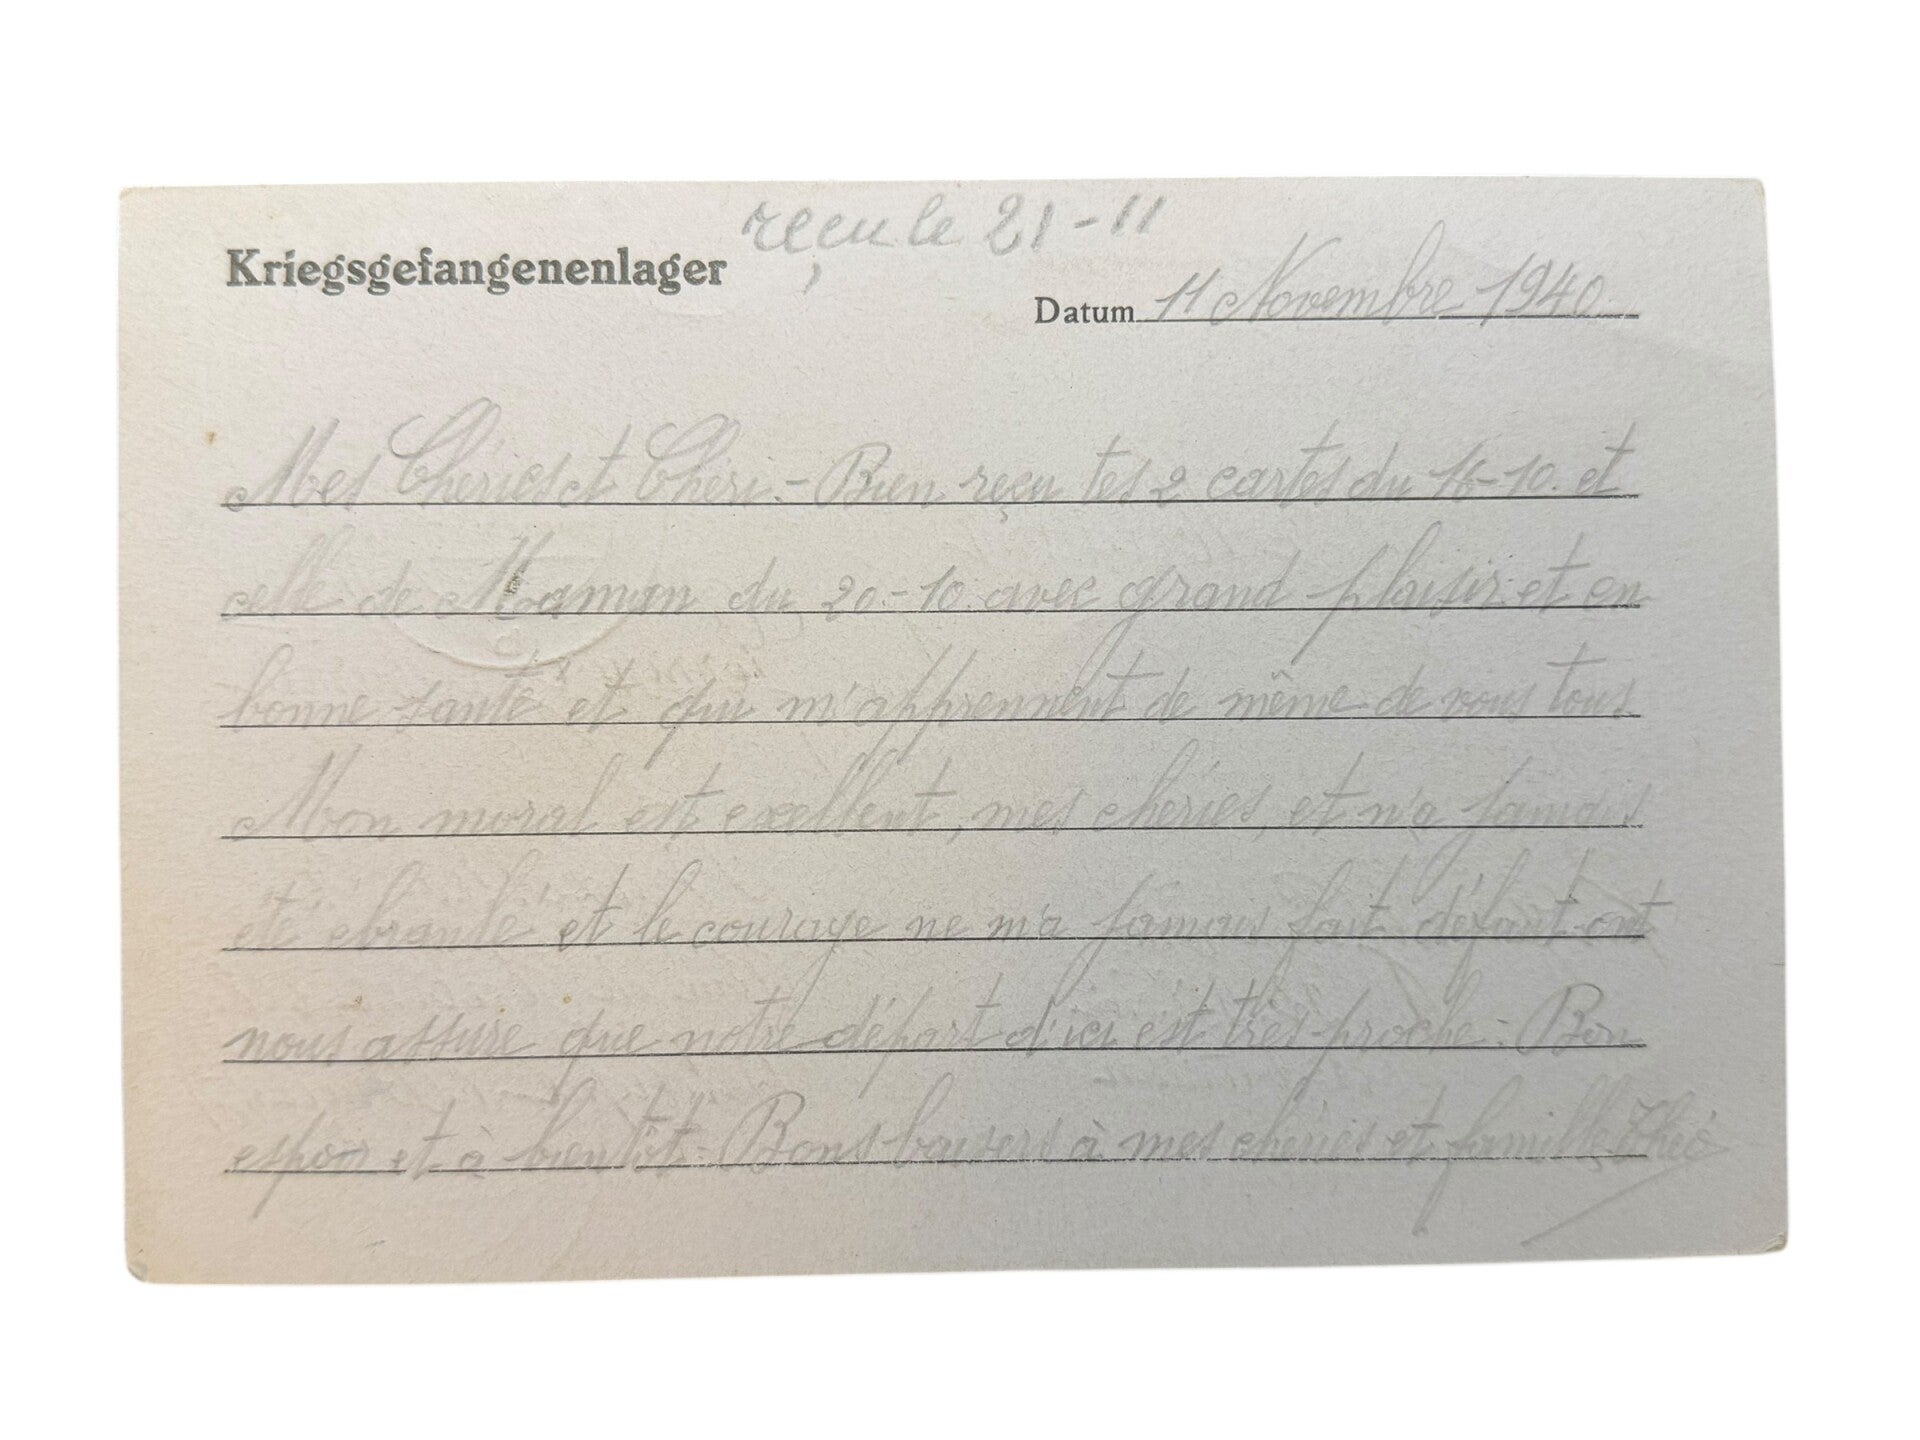 reçu le 21-11
Kriegsgefangenenlager
Datum 11 Novembre 1940.
Mes Chéries et Chéri.- Bien reçu tes 2 cartes du 16-10. et
celle de Maman du 20.-10. avec grand plaisir. et en
bonne santé et qui m'apprennent de même de vous tous
Mon moral est exellent, mes chéries, et n'a jamais
été ébranlé et le courage ne m'a jamais fait défaut. ont
nous assure que notre départ d'ici est très proche. Bon
espoir et à bientôt. Bons baisers à mes chéries et famille Théo